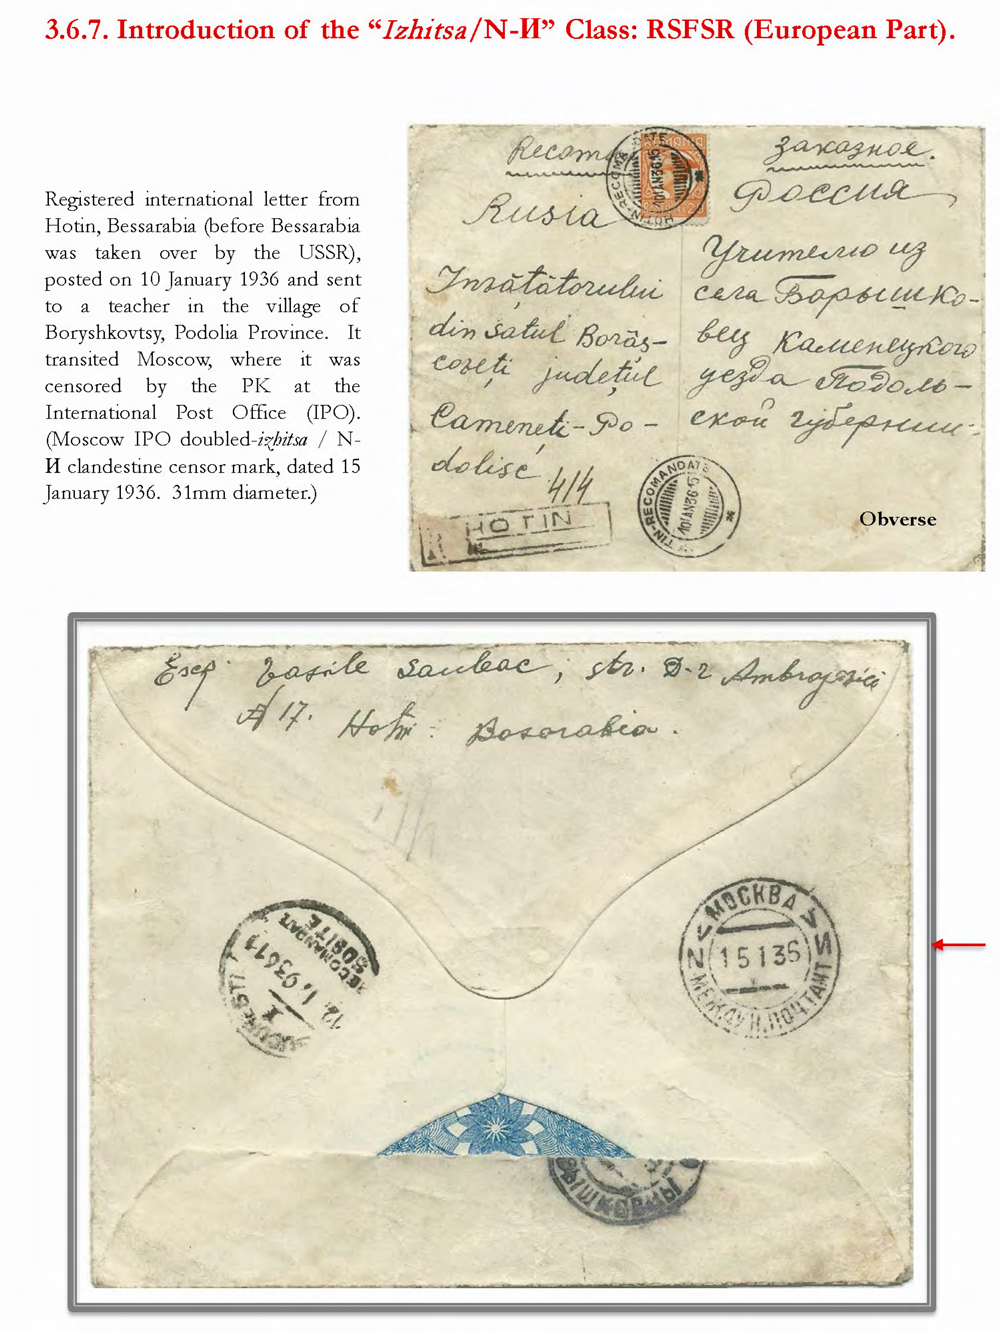 3.6.7. Introduction of the “Izhitsa/N-И” Class: RSFSR (European Part).
Registered international letter from
Hotin, Bessarabia (before Bessarabia
was taken over by the USSR),
posted on 10 January 1936 and sent
to a teacher in the village of
Boryshkovtsy, Podolia Province. It
transited Moscow, where it was
censored by the PK at the
International Post Office (IPO).
(Moscow IPO doubled-izhitsa / N-
И clandestine censor mark, dated 15
January 1936. 31mm diameter.)
Recom
Rusia
Insătătorului
din satul Borăș-
coveți județul
Cameneti-Po-
dolisc
414
HOTIN
HOTIN-RECOMANDATE
10 IAN 36 15
Заказное.
Россия
Учителю из
села Барышко-
вец Каменецкого
уезда Подоль-
ской губернии
TIN-RECOMANDATE
10 IAN 36 15
Obverse
Esep. Vasile
str. D-r
17. Hotin. Basarabia.
RECOMANDAT
SOSITE
12. I. 936 11
МОСКВА
15 1 36
N И
МЕЖДУН. ПОЧТАМТ
ЫШКОВЦЫ